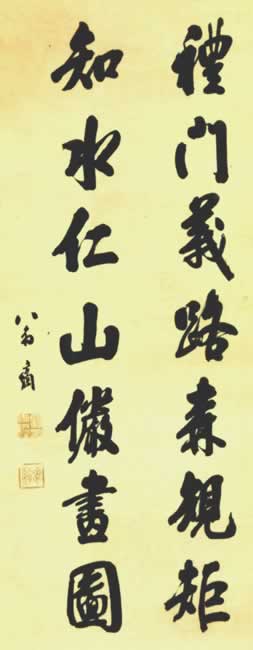 禮門義路森規矩
知水仁山儼畫圖
八翁商